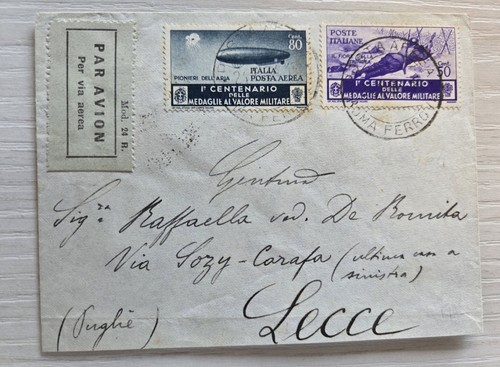 PAR AVION
Per via aerea
Mod. 24 R.
Cent. 80
PIONIERI DELL'ARIA
ITALIA
POSTA AEREA
I° CENTENARIO
DELLE
MEDAGLIE AL VALORE MILITARE
POSTE
ITALIANE
I° CENTENARIO
DELLE
MEDAGLIE AL VALORE MILITARE
ROMA FERROV
Sig.ra Raffaella ved. De Bonita
Via Sozy-Carafa (ultima casa a
sinistra)
(Puglie)
Lecce